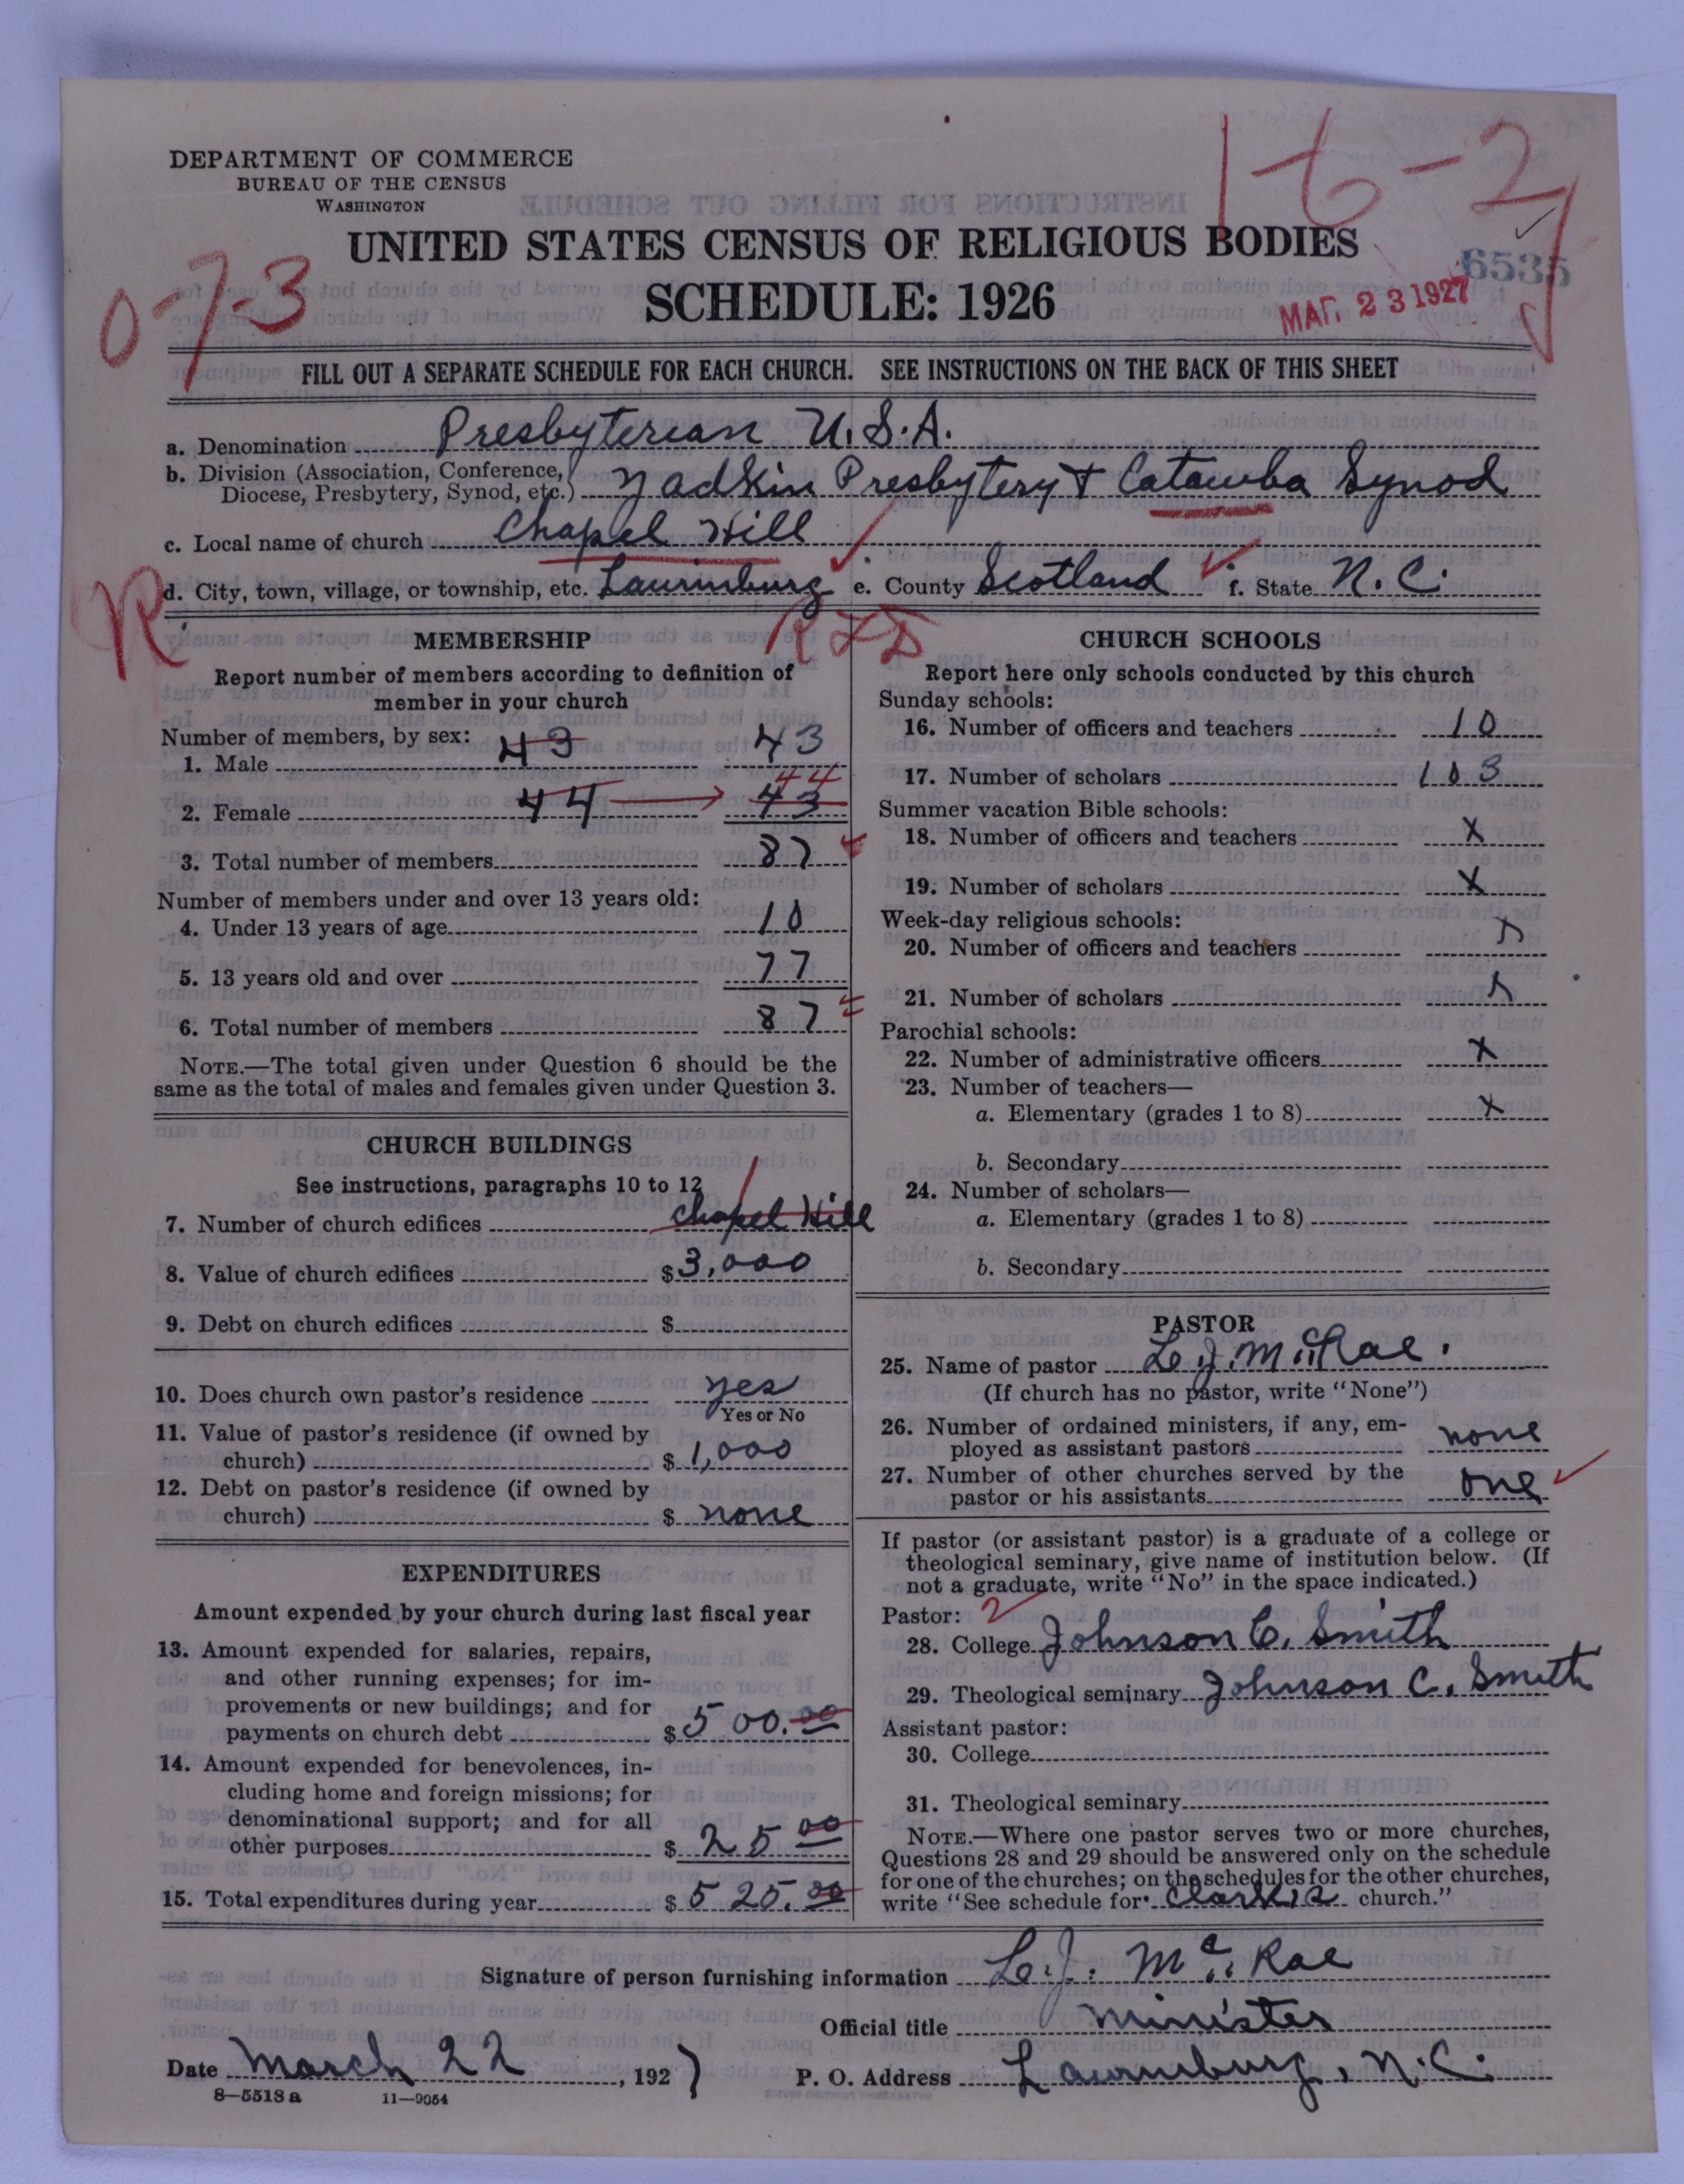 1-6-2
DEPARTMENT OF COMMERCE
BUREAU OF THE CENSUS
WASHINGTON
UNITED STATES CENSUS OF RELIGIOUS BODIES
6535
0-7-3
SCHEDULE: 1926
MAR. 23 1927
FILL OUT A SEPARATE SCHEDULE FOR EACH CHURCH. SEE INSTRUCTIONS ON THE BACK OF THIS SHEET
a. Denomination Presbyterian U.S.A.
b. Division (Association, Conference, Diocese, Presbytery, Synod, etc.) Yadkin Presbytery & Catawba Synod
c. Local name of church Chapel Hill
d. City, town, village, or township, etc. Laurinburg e. County Scotland f. State N.C.
R
MEMBERSHIP
Report number of members according to definition of
member in your church
Number of members, by sex:
1. Male 43 43
44
2. Female 44 43
3. Total number of members 87
Number of members under and over 13 years old:
4. Under 13 years of age 10
5. 13 years old and over 77
6. Total number of members 87
NOTE.—The total given under Question 6 should be the
same as the total of males and females given under Question 3.
CHURCH BUILDINGS
See instructions, paragraphs 10 to 12
7. Number of church edifices Chapel Hill
8. Value of church edifices $3,000
9. Debt on church edifices $
10. Does church own pastor's residence yes
Yes or No
11. Value of pastor's residence (if owned by
church) $ 1,000
12. Debt on pastor's residence (if owned by
church) $ none
EXPENDITURES
Amount expended by your church during last fiscal year
13. Amount expended for salaries, repairs,
and other running expenses; for im-
provements or new buildings; and for
payments on church debt $500.00
14. Amount expended for benevolences, in-
cluding home and foreign missions; for
denominational support; and for all
other purposes $ 25 00
15. Total expenditures during year $ 525.00
RFD
CHURCH SCHOOLS
Report here only schools conducted by this church
Sunday schools:
16. Number of officers and teachers 10
17. Number of scholars 103
Summer vacation Bible schools:
18. Number of officers and teachers X
19. Number of scholars X
Week-day religious schools:
20. Number of officers and teachers X
21. Number of scholars X
Parochial schools:
22. Number of administrative officers X
23. Number of teachers—
a. Elementary (grades 1 to 8) X
b. Secondary
24. Number of scholars—
a. Elementary (grades 1 to 8)
b. Secondary
PASTOR
25. Name of pastor L.J. McRae.
(If church has no pastor, write "None")
26. Number of ordained ministers, if any, em-
ployed as assistant pastors none
27. Number of other churches served by the
pastor or his assistants one
If pastor (or assistant pastor) is a graduate of a college or
theological seminary, give name of institution below. (If
not a graduate, write "No" in the space indicated.)
Pastor: 2
28. College Johnson C. Smith
29. Theological seminary Johnson C. Smith
Assistant pastor:
30. College
31. Theological seminary
NOTE.—Where one pastor serves two or more churches,
Questions 28 and 29 should be answered only on the schedule
for one of the churches; on the schedules for the other churches,
write "See schedule for church."
Signature of person furnishing information L.J. McRae
Official title Minister
Date March 22, 1927 P. O. Address Laurinburg, N.C.
8—5518 a 11—9054